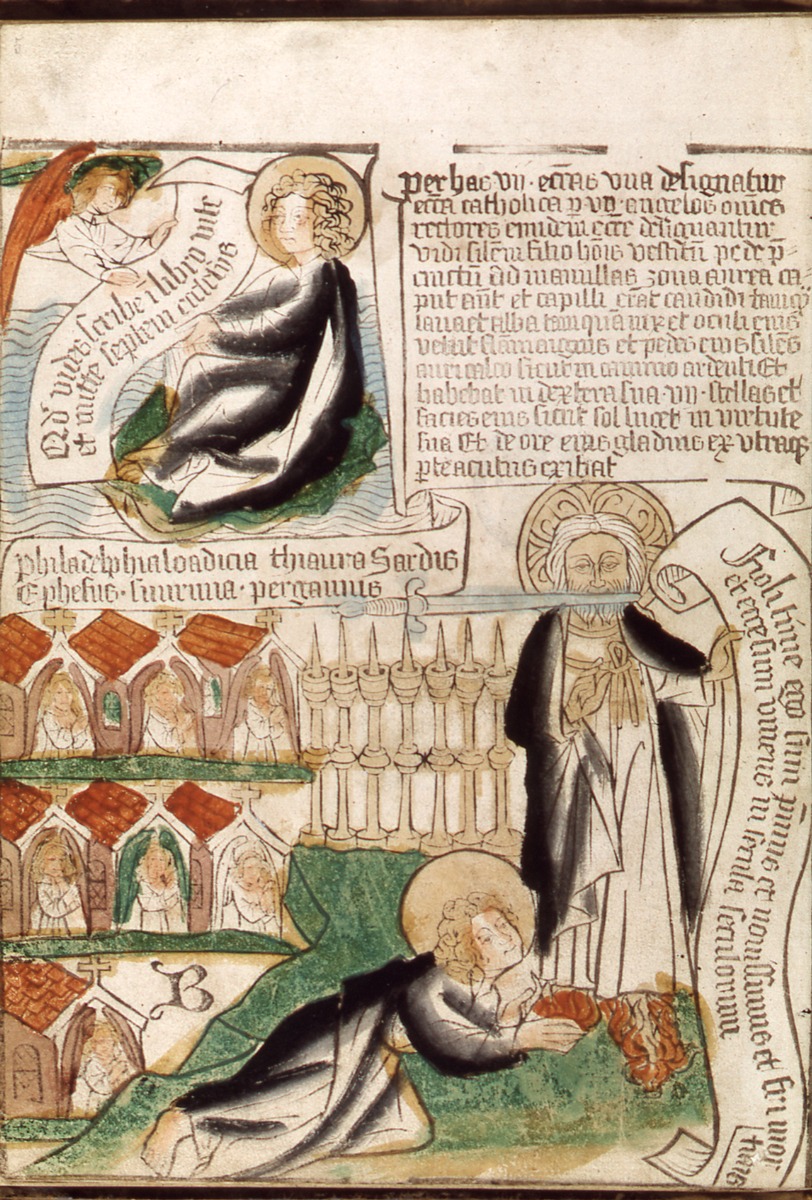 Qd' vides scribe i libro vite
et mitte septem ecclesiis
per has vij · ecc̄ias vna designatur
ecc̄ia catholica p̄ vij angelos omnes
rectores eiusdem ecc̄ie designantur
vidi silem filio hōis vestitū pode p̄
cinctū ad mamillas zona aurea ca
put aūt et capilli erāt candidi tamq̄
lana et alba tamquā nix et oculi eius
velut flama ignis et pedes eius siles
auricalco sicut in camino ardenti Et
habebat in dextera sua · vij · stellas et
facies eius sicut sol lucet in virtute
sua Et de ore eius gladius ex vtraq̄
p̄te acutus exibat
philadelphia loadicia thiatira Sardis
Ephesus · smirma · pergamus
Noli time ego sum p̄imus et nouissimus et fui mor
tuus
et ecce sum viuens in secula seculorum
B